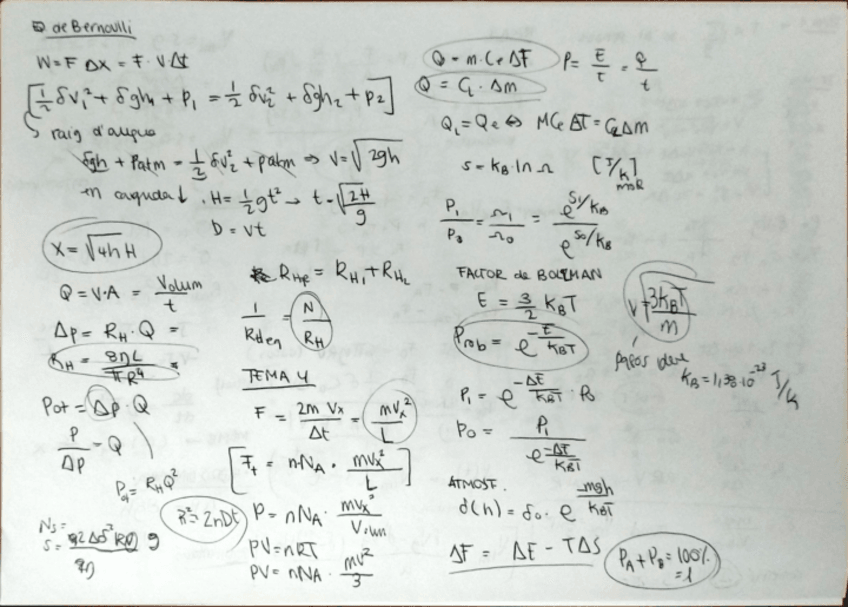 EQ de Bernoulli
W = F Δx = F · V Δt
[½ δv₁² + δgh₁ + P₁ = ½ δv₂² + δgh₂ + P₂]
↳ raig d'aigua
δgh + Patm = ½ δv₂² + Patm ⇒ V = √2gh
en caiguda ↓ · H = ½ gt² → t = √(2H/g)
D = vt
X = √4hH
Q = V·A = Volum/t
Δp = R_H · Q =
R_H = 8ηL/πR⁴ =
Pot = Δp · Q
P/Δp = Q
Pot = R_H Q²
R² = 2nDt
R_HR = R_H₁ + R_H₂
1/R_den = N/R_H
TEMA 4
F = 2m Vx/Δt = mVx²/L
[F_t = n·N_A · mVx²/L]
P = nN_A · mVx²/Volum
PV = nRT
PV = nN_A · mv²/3
Q = m·Ce ΔF
Q = C_L · Δm
P = E/t = Q/t
Q_L = Q_e ⇔ MCe ΔT = C_L Δm
S = k_B · ln Ω [J/K]
P₁/P₀ = Ω₁/Ω₀ = e^(S₁/k_B)/e^(S₀/k_B)
FACTOR de BOLTMAN
E = 3/2 k_B T
V = √(3k_B T/m)
Prob = e^(-E/k_B T)
gasos ideal
k_B = 1,38·10⁻²³ J/K
P₁ = e^(-ΔE/k_B T) · P₀
P₀ = P₁/e^(-ΔE/k_B T)
ATMOST.
δ(h) = δ₀ · e^(-mgh/k_B T)
ΔF = ΔE - TΔS
P_A + P_B = 100%
= 1